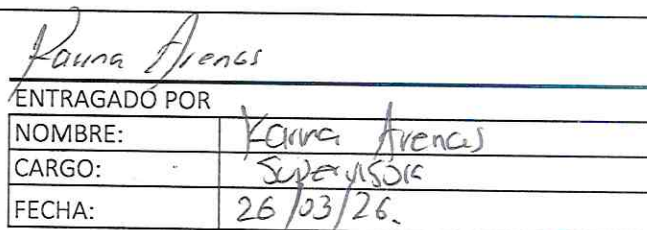 Karina Arenas
ENTRAGADO POR
NOMBRE: Karina Arenas
CARGO: Supervisora
FECHA: 26/03/26.